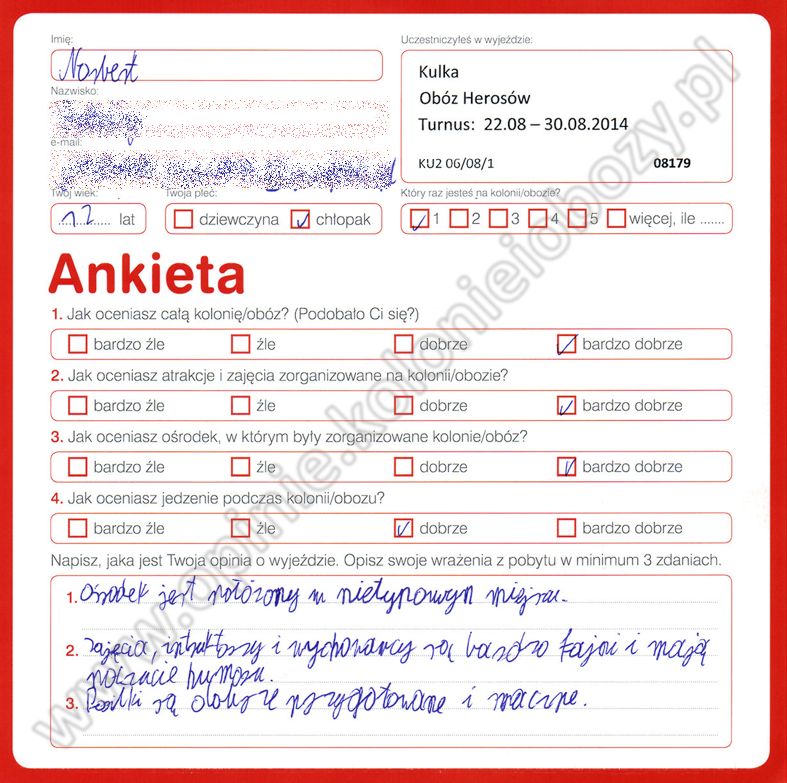 Imię:
Norbert
Nazwisko:
e-mail:
Twój wiek:
12 lat
Twoja płeć:
dziewczyna chłopak
Uczestniczyłeś w wyjeździe:
Kulka
Obóz Herosów
Turnus: 22.08 – 30.08.2014
KU2 06/08/1 08179
Który raz jesteś na kolonii/obozie?
1 2 3 4 5 więcej, ile .......
Ankieta
1. Jak oceniasz całą kolonię/obóz? (Podobało Ci się?)
bardzo źle źle dobrze bardzo dobrze
2. Jak oceniasz atrakcje i zajęcia zorganizowane na kolonii/obozie?
bardzo źle źle dobrze bardzo dobrze
3. Jak oceniasz ośrodek, w którym były zorganizowane kolonie/obóz?
bardzo źle źle dobrze bardzo dobrze
4. Jak oceniasz jedzenie podczas kolonii/obozu?
bardzo źle źle dobrze bardzo dobrze
Napisz, jaka jest Twoja opinia o wyjeździe. Opisz swoje wrażenia z pobytu w minimum 3 zdaniach.
1. Ośrodek jest położony w nietypowym miejscu.
2. zajęcia, i wychowawcy są bardzo fajni i mają
poczucie humoru.
3. Posiłki są dobrze przygotowane i smaczne.
www.opinie.kolonieiobozy.pl